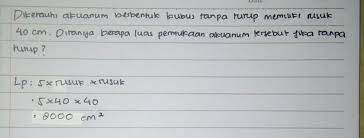 Diketahui akuarium berbentuk kubus tanpa tutup memiliki rusuk
40 cm. Ditanya berapa luas permukaan akuarium tersebut jika tanpa
tutup?
Lp: 5 x rusuk x rusuk
: 5 x 40 x 40
: 8000 cm²